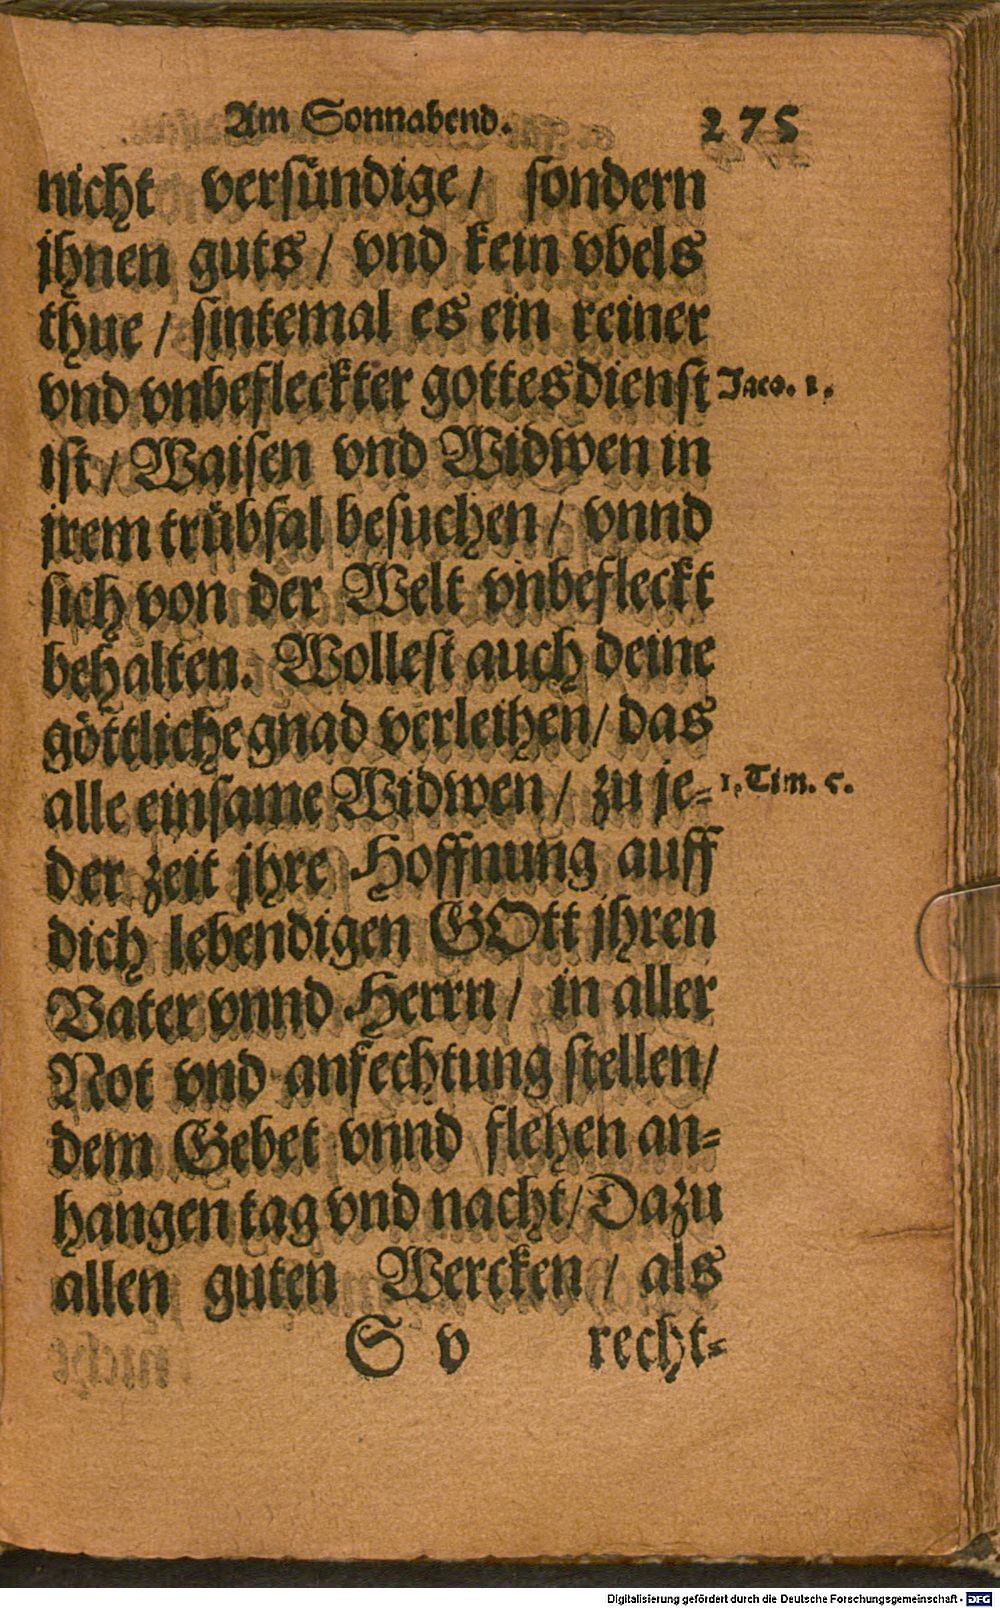 Am Sonnabend. 275
nicht versündige / sondern
jhnen guts / vnd kein vbels
thue / sintemal es ein reiner
vnd vnbefleckter gottesdienst Jaco. 1.
ist / Waisen vnd Widwen in
jrem trübsal besuchen / vnnd
sich von der Welt vnbefleckt
behalten. Wollest auch deine
göttliche gnad verleihen / das
alle einsame Widwen / zu je= 1. Tim. 5.
der zeit jhre Hoffnung auff
dich lebendigen GOtt jhren
Vater vnnd Herrn / in aller
Not vnd anfechtung stellen /
dem Gebet vnnd flehen an=
hangen tag vnd nacht / Dazu
allen guten Wercken / als
S v recht=
Digitalisierung gefördert durch die Deutsche Forschungsgemeinschaft - DFG